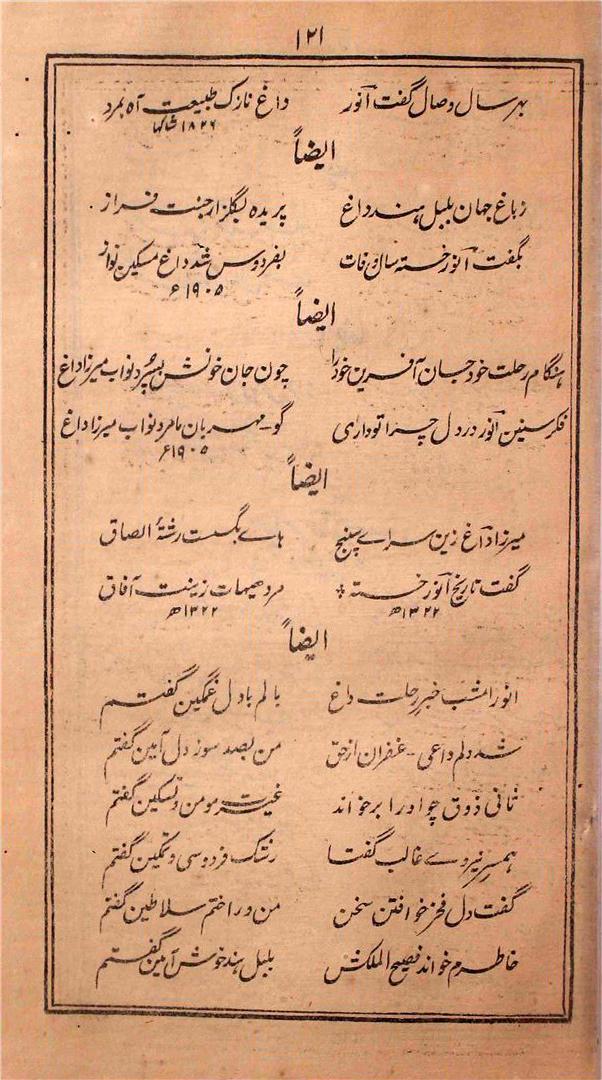 ۱۲۱
بہر سال وصال گفت آنور داغ نازک طبیعت آہ بمرد
۱۸۲۶ شاکہا
ایضاً
زباغ جہان بلبل ہند داغ پریدہ بگلزار جنت فراز
بگفت آنور خستہ سال وفات بفردوس شد داغ مسکین نواز
۱۹۰۵ء
ایضاً
ہنگام رحلت خود جان آفرین خود را چون جان خونش بسپرد نواب میرزا داغ
فکر سنین آنور در دل چرا تو داری گو۔ مہربان ما مرد نواب میرزا داغ
۱۹۰۵ء
ایضاً
میرزا داغ زین سراے سپنج ہاے بگسست رشتۂ الصاق
گفت تاریخ آنور خستہ * مرد ہیہات زینت آفاق
۱۳۲۲ھ ۱۳۲۲ھ
ایضاً
انور امشب خبر رحلت داغ بالم با دل غمگین گفتم
شد دلم داعی۔ غفران از حق من بصد سوز دل آمین گفتم
ثانی ذوق چو او را برخواند غیرت مومن و تسکین گفتم
ہمسر نیروے غالب گفتا رشک فردوسی و تمکین گفتم
گفت دل فخر خواقین سخن من ورا ختم سلاطین گفتم
خاطرم خواند فصیح الملکش بلبل ہند خوش آمین گفتم